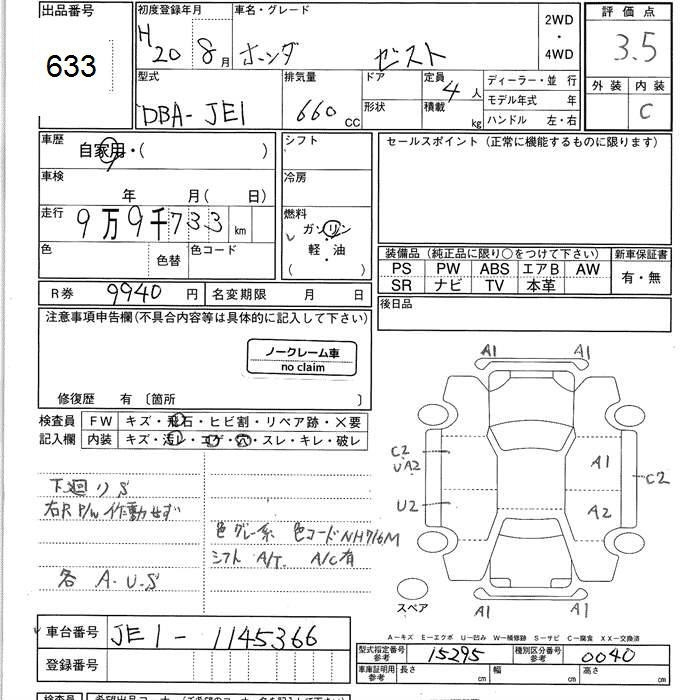 出品番号
633
初度登録年月
H20 8月
車名・グレード
ホンダ ゼスト
2WD
・
4WD
評価点
3.5
外装 内装
C
型式
DBA-JE1
排気量
660 CC
ドア
形状
定員
4人
積載
kg
ディーラー・並 行
モデル年式 年
ハンドル 左・右
車歴
自家用・( )
車検
年 月( 日)
走行
9万9千733 km
色
色替
色コード
シフト
冷房
燃料
ガソリン
軽・油
( )
セールスポイント (正常に機能するものに限ります)
装備品 (純正品に限り○をつけて下さい)
新車保証書
PS PW ABS エアB AW
SR ナビ TV 本革
有・無
R券 9940 円
名変期限 月 日
後日品
注意事項申告欄(不具合内容等は具体的に記入して下さい)
ノークレーム車
no claim
修復歴 有 〔箇所 〕
検査員
記入欄
FW キズ・飛石・ヒビ割・リペア跡・×要
内装 キズ・汚レ・コゲ・穴・スレ・キレ・破レ
下廻りS
右R P/W 作動せず
色グレー系 色コードNH716M
シフト A/T. A/C有
各 A.U.S
A1 A1
C2
UA2
A1
C2
U2
A2
A1 A1
スペア
車台番号 JE1-1145366
登録番号
A―キズ E―エクボ U―凹み W―補修跡 S―サビ C―腐食 XX―交換済
型式指定番号
参考
15295
種別区分番号
参考
0040
車庫証明用
参考
長さ cm
幅 cm
高さ cm